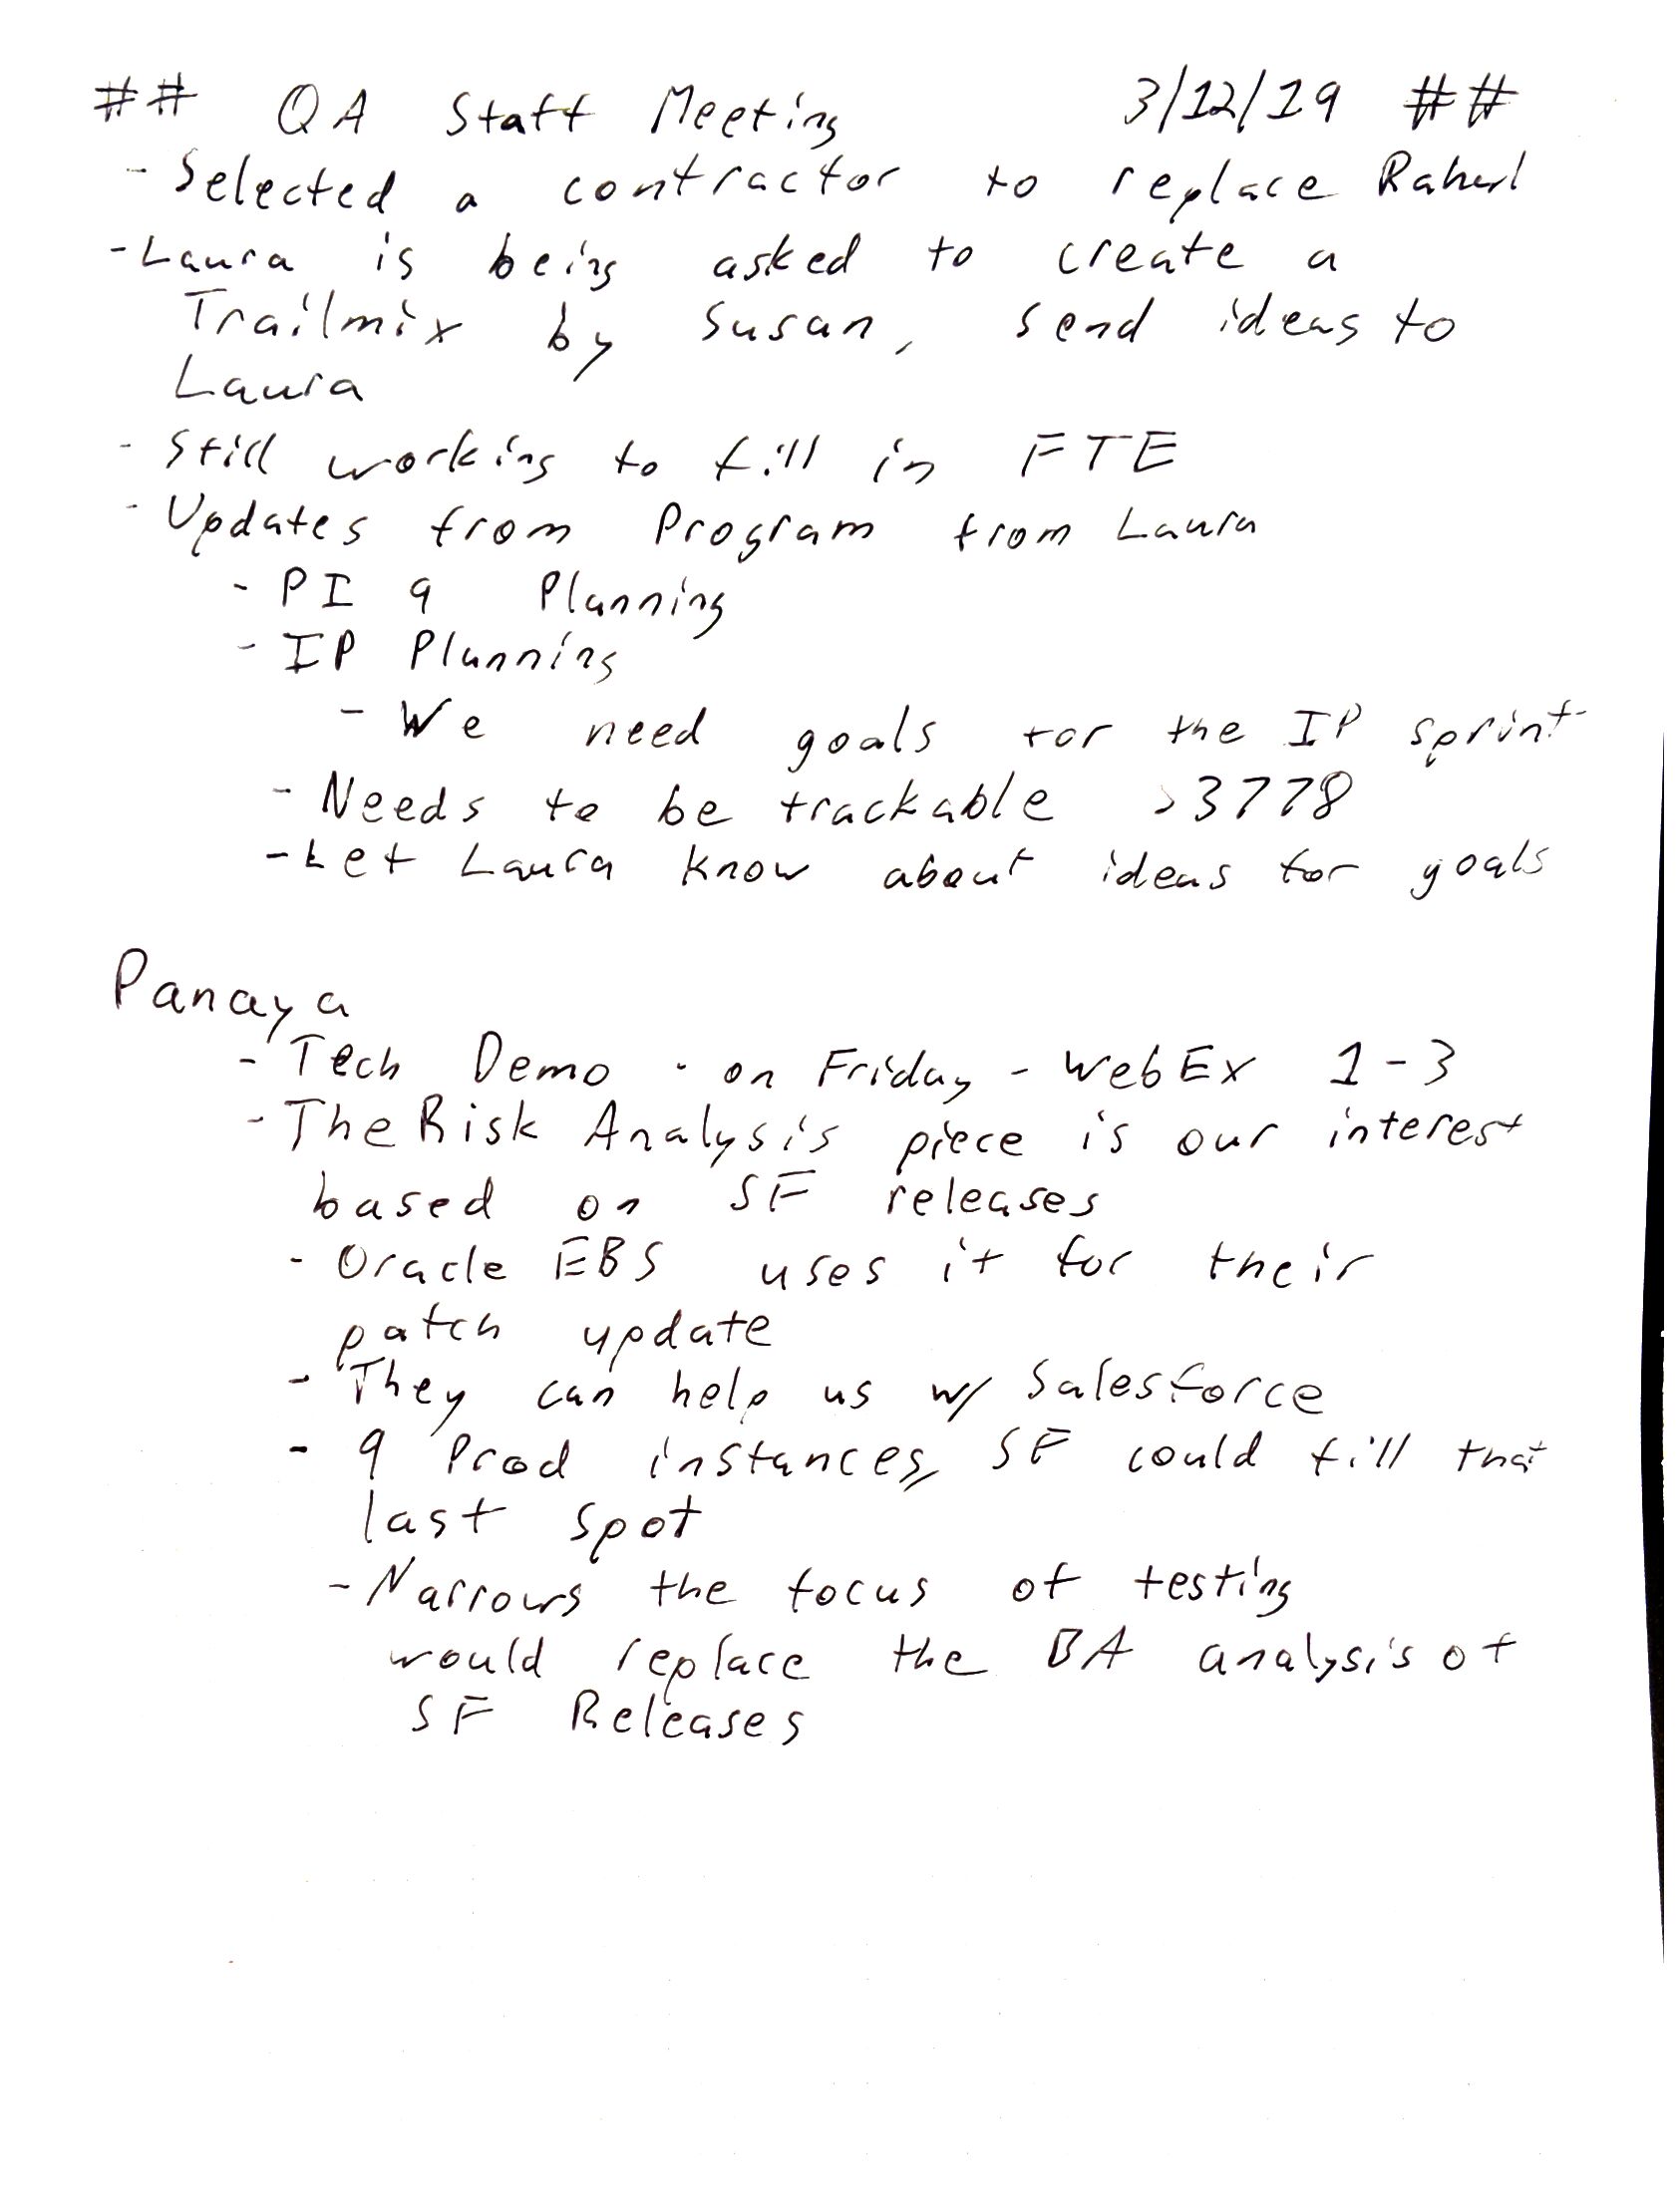 ## QA Staff Meeting 3/12/19 ##
- Selected a contractor to replace Rahul
- Laura is being asked to create a
Trailmix by Susan, send ideas to
Laura
- Still working to fill in FTE
- Updates from Program from Laura
- PI 9 Planning
- IP Planning
- We need goals for the IP sprint
- Needs to be trackable >3778
- Let Laura know about ideas for goals
Panaya
- Tech Demo - on Friday - WebEx 1-3
- The Risk Analysis piece is our interest
based on SF releases
- Oracle EBS uses it for their
patch update
- They can help us w/ Salesforce
- 9 Prod instances, SF could fill that
last spot
- Narrows the focus of testing
would replace the BA analysis of
SF Releases